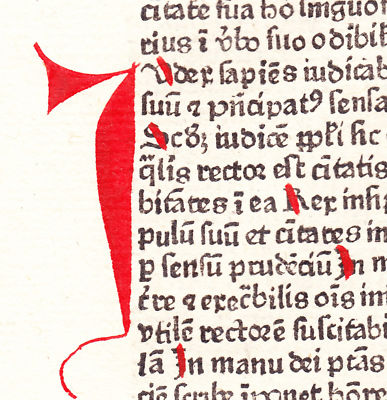 citate sua hō linguo
rius ī v̄bo suo odibil
Iudex sapiēs iudicab
suū ⁊ pn̄cipatꝰ sensa
Scďꝫ iudicē ppľi sic
q̄lis rector est cītatis
bitātes ī ea Rex insip
pulū suū et cītates in
ꝑ sensū prudēciū In m
t̄re ⁊ execb̄ilis oīs in
vtilē rectorē suscitabi
lā In manu dei ptās
ciē scribe īponet hōre